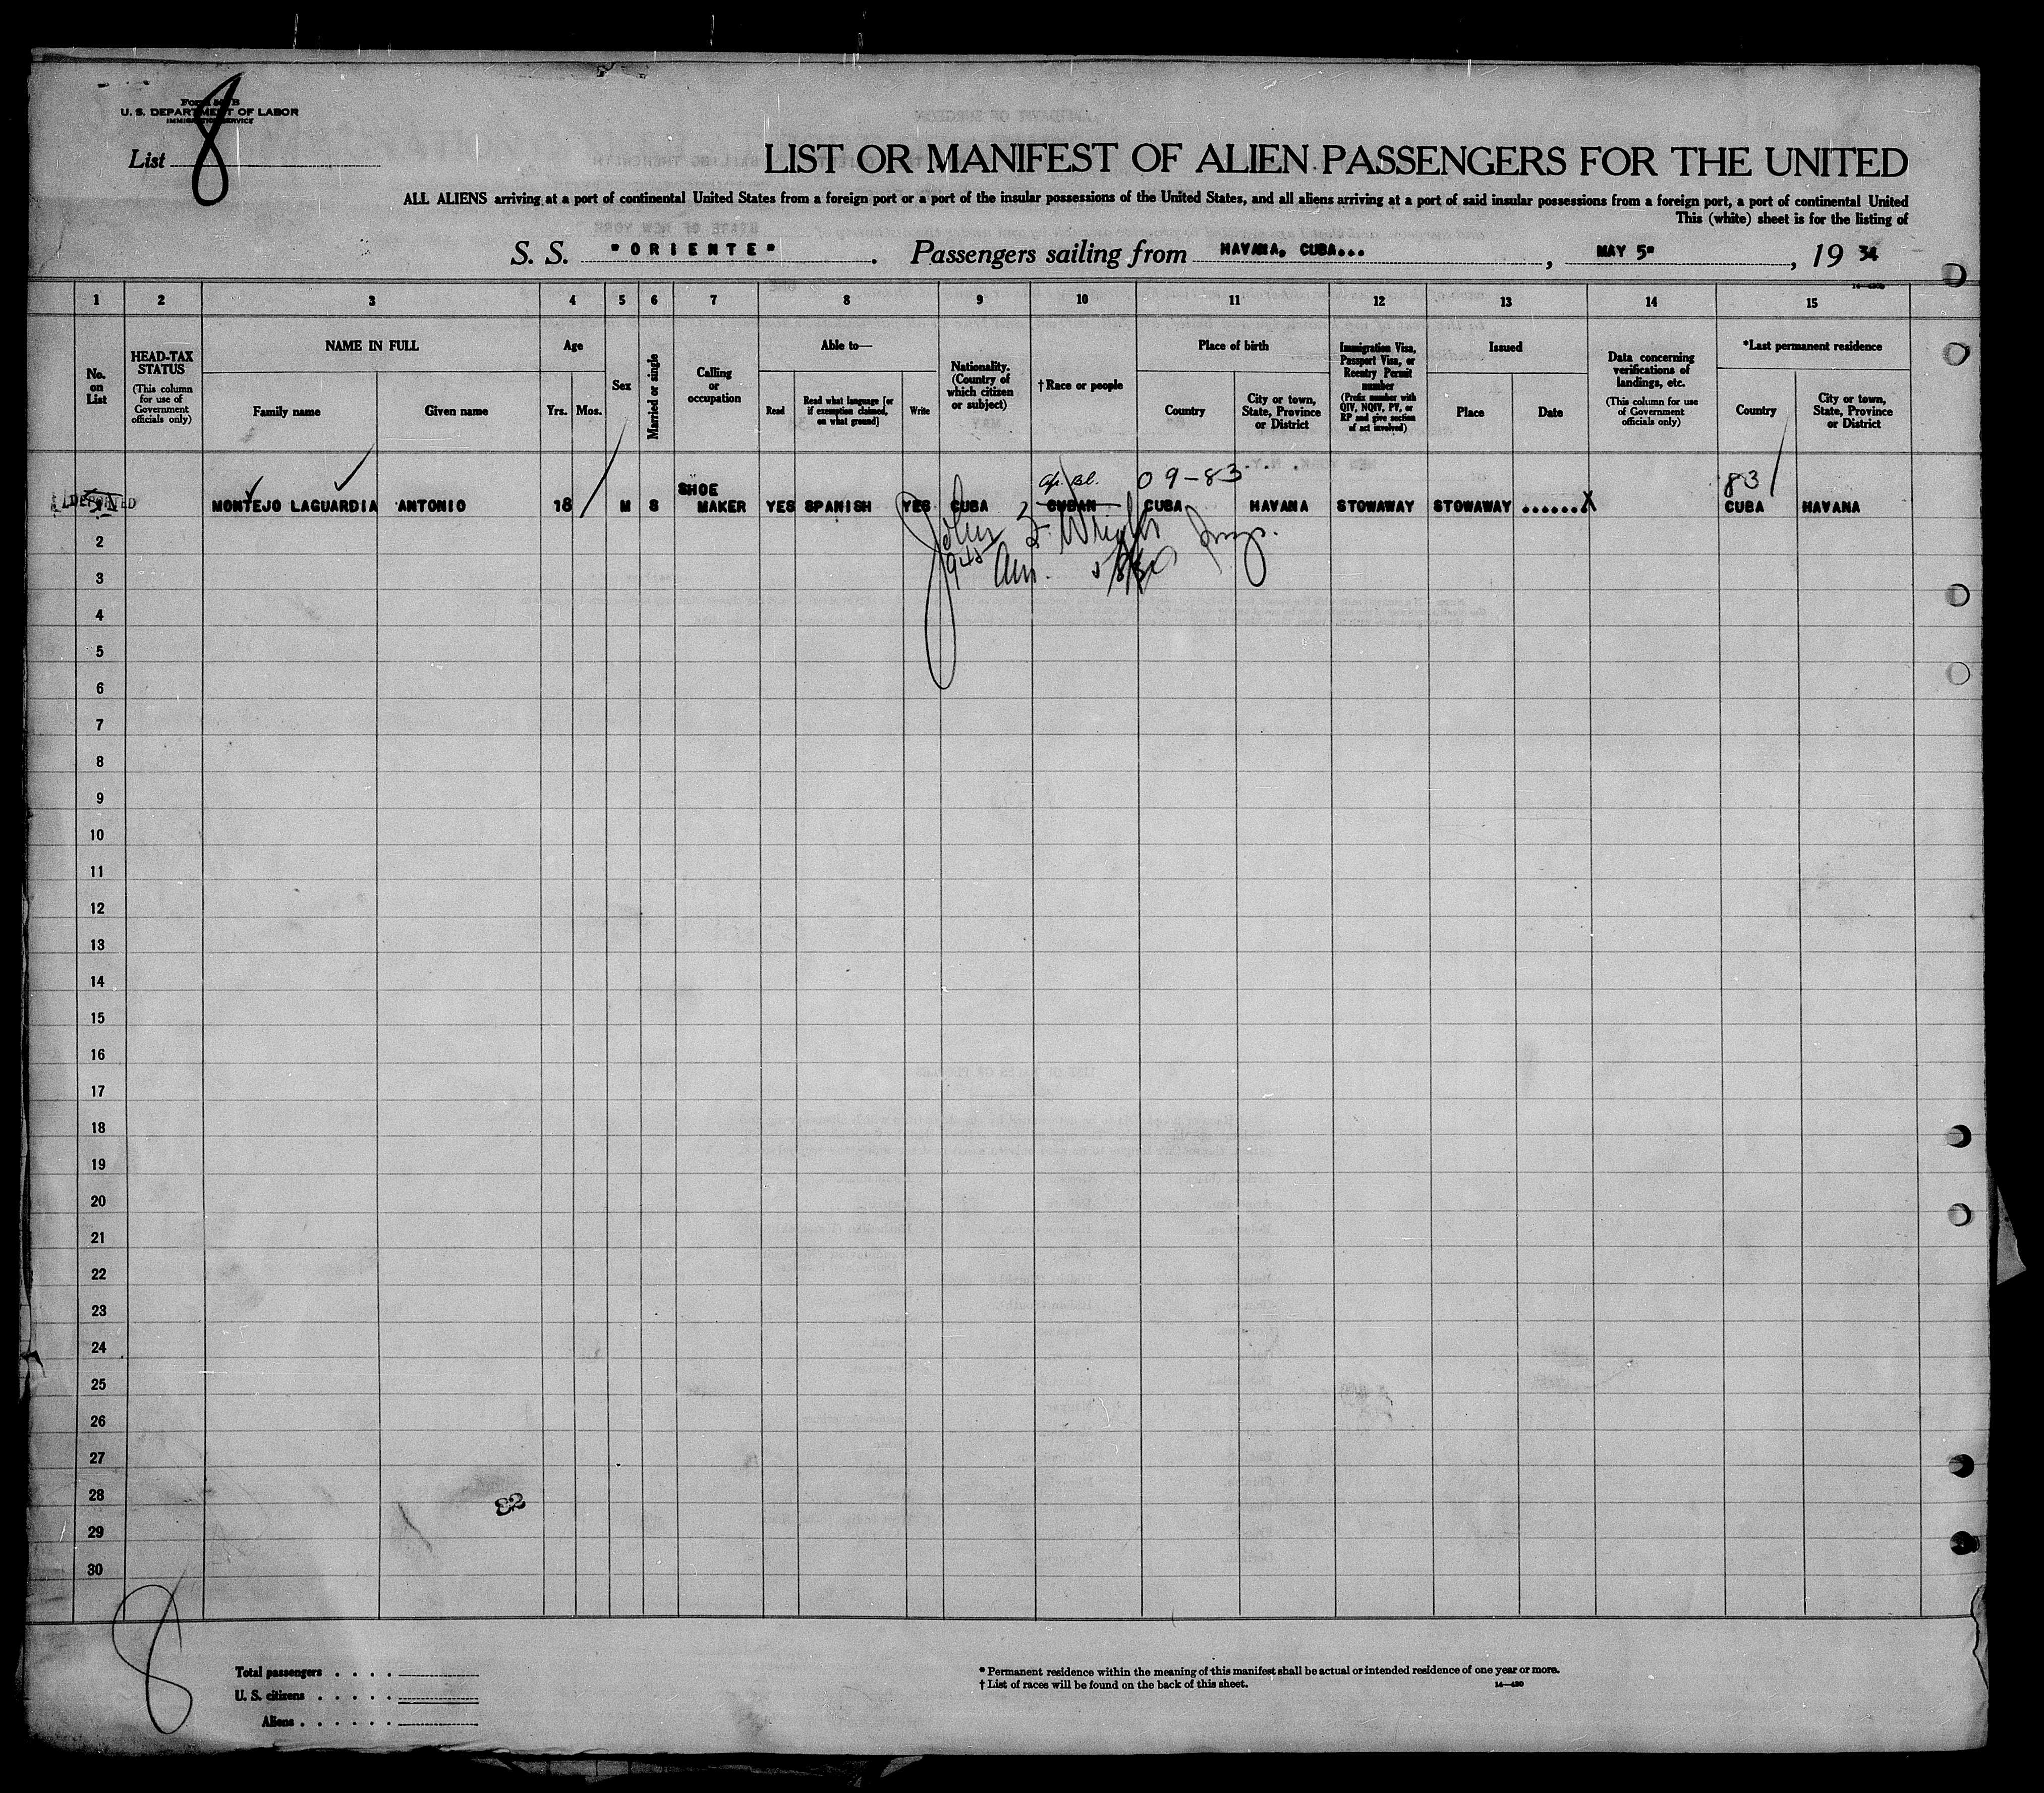 U. S. DEPARTMENT OF LABOR
IMMIGRATION SERVICE
List 8
LIST OR MANIFEST OF ALIEN PASSENGERS FOR THE UNITED
ALL ALIENS arriving at a port of continental United States from a foreign port or a port of the insular possessions of the United States, and all aliens arriving at a port of said insular possessions from a foreign port, a port of continental United
This (white) sheet is for the listing of
S. S. "ORIENTE". Passengers sailing from HAVANA, CUBA..., MAY 5", 1934
1 2 3 4 5 6 7 8 9 10 11 12 13 14 15
No. on List
HEAD-TAX STATUS
(This column for use of Government officials only)
NAME IN FULL
Family name
Given name
Age
Yrs. Mos.
Sex
Married or single
Calling or occupation
Able to—
Read
Read what language [or if exemption claimed, on what ground]
Write
Nationality. (Country of which citizen or subject)
†Race or people
Place of birth
Country
City or town, State, Province or District
Immigration Visa, Passport Visa, or Reentry Permit number
(Prefix number with QIV, NQIV, PV, or RP and give section of act involved)
Issued
Place
Date
Data concerning verifications of landings, etc.
(This column for use of Government officials only)
*Last permanent residence
Country
City or town, State, Province or District
Af. Bl. 09-83 83
DEPORTED MONTEJO LAGUARDIA ANTONIO 18 M S SHOE MAKER YES SPANISH YES CUBA CUBAN CUBA HAVANA STOWAWAY STOWAWAY ......X CUBA HAVANA
John Wright Insp.
2
3
4
5
6
7
8
9
10
11
12
13
14
15
16
17
18
19
20
21
22
23
24
25
26
27
28
29
30
82
8
Total passengers . . . .
U. S. citizens . . . . .
Aliens . . . . . .
* Permanent residence within the meaning of this manifest shall be actual or intended residence of one year or more.
† List of races will be found on the back of this sheet.
14—430